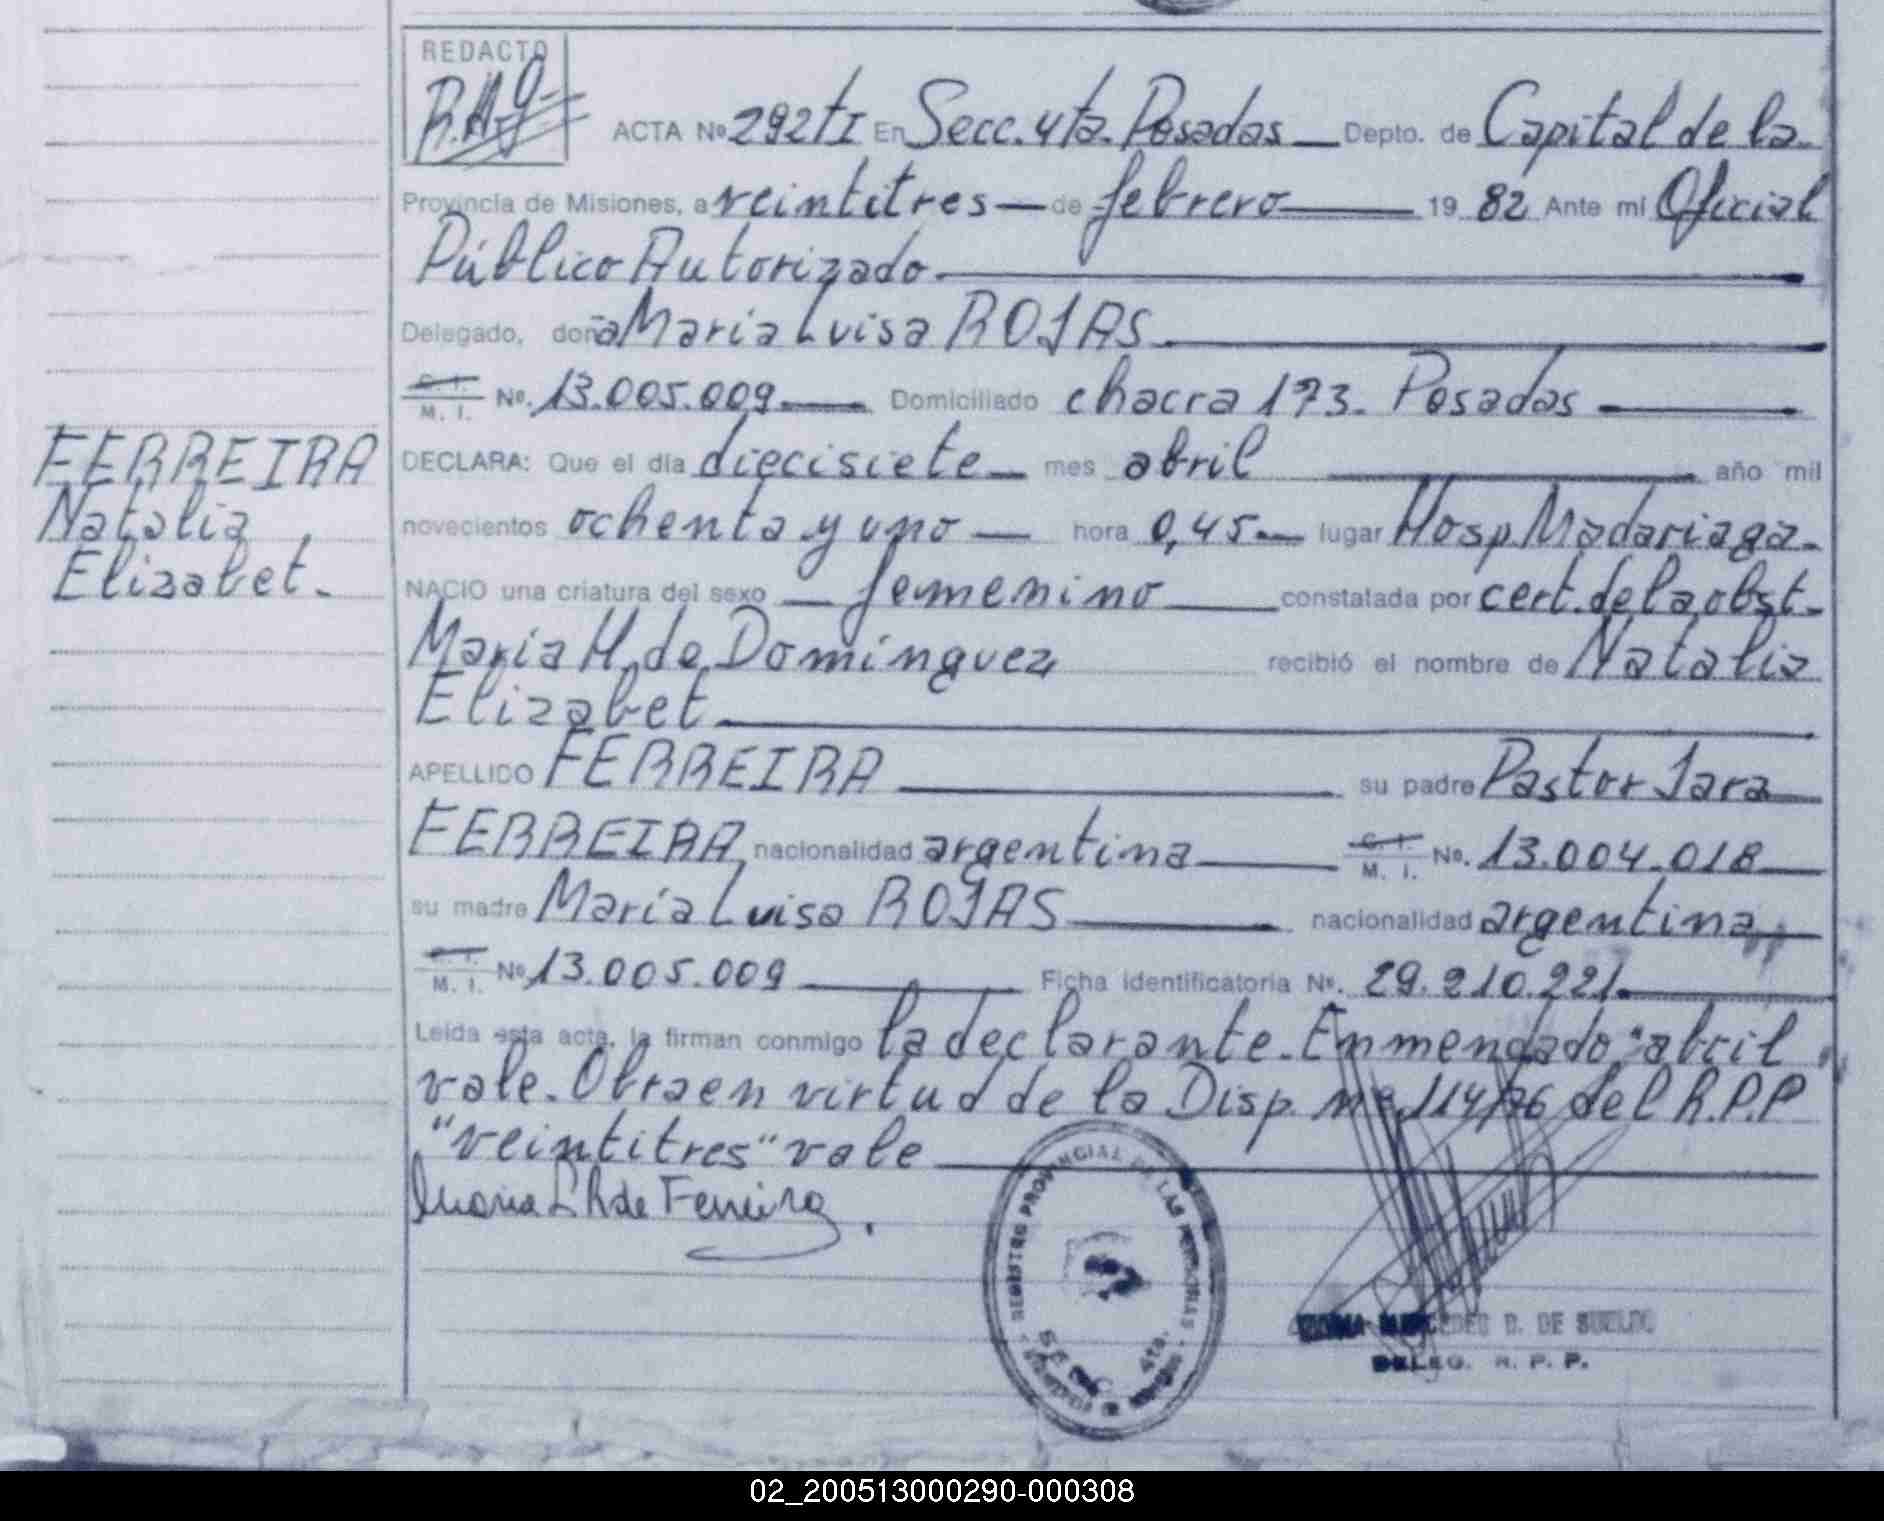 REDACTO
R.A.G
ACTA Nº 292TI En Secc. 4ta. Posadas Depto. de Capital de la
Provincia de Misiones, a veintitres de febrero 19 82 Ante mi Oficial
Público Autorizado
Delegado, doña María Luisa ROJAS
C. I.
M. I. Nº. 13.005.009 Domiciliado chacra 173. Posadas
DECLARA: Que el día diecisiete mes abril año mil
novecientos ochenta y uno hora 0,45 lugar Hosp. Madariaga.
NACIO una criatura del sexo femenino constatada por cert. de la obst.
María H. de Domínguez recibió el nombre de Natalia
Elizabet
APELLIDO FERREIRA su padre Pastor Jara
FERREIRA nacionalidad argentina C. I.
M. I. Nº. 13.004.018
su madre María Luisa ROJAS nacionalidad argentina
M. I. Nº 13.005.009 Ficha identificatoria Nº. 29.210.221.
Leída esta acta, la firman conmigo la declarante. Enmendado "abril
vale. Obra en virtud de la Disp. nº 114/76 del R.P.P
"veintitres" vale
Maria L R de Ferreira.
FERREIRA
Natalia
Elizabet.
REGISTRO PROVINCIAL DE LAS PERSONAS
4ta.
MERCEDES D. DE SUELDO
DELEG. R. P. P.
02_200513000290-000308